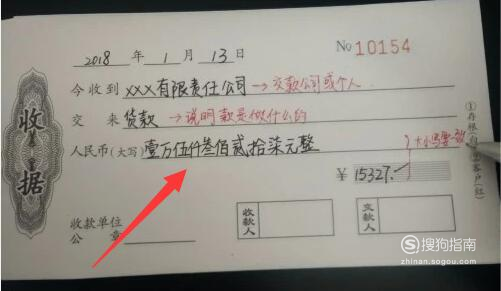 2018 年 1 月 13 日 No 10154
今收到 XXX有限责任公司→交款公司或个人
交来 货款→说明款是做什么的
人民币(大写) 壹万伍仟叁佰贰拾柒元整
大小写要一致
¥ 15327.
收款单位
公章
收款人
交款人
收据
①存根(白)②客户(红)
搜狗指南
zhinan.sogou.com